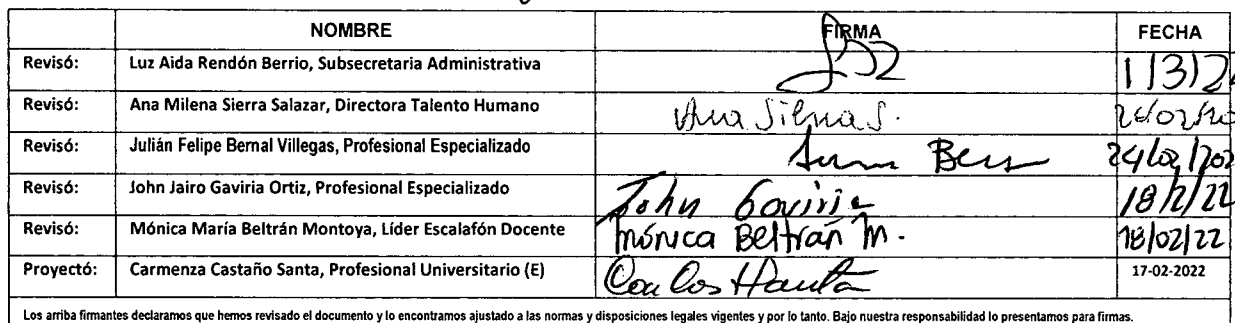 NOMBRE FIRMA FECHA
Revisó: Luz Aida Rendón Berrio, Subsecretaria Administrativa 1/3/2
Revisó: Ana Milena Sierra Salazar, Directora Talento Humano Ana Sierra S.
Revisó: Julián Felipe Bernal Villegas, Profesional Especializado 24/02/202
Revisó: John Jairo Gaviria Ortiz, Profesional Especializado John Gaviria 18/2/22
Revisó: Mónica María Beltrán Montoya, Líder Escalafón Docente Mónica Beltrán M. 18/02/22
Proyectó: Carmenza Castaño Santa, Profesional Universitario (E) 17-02-2022
Los arriba firmantes declaramos que hemos revisado el documento y lo encontramos ajustado a las normas y disposiciones legales vigentes y por lo tanto. Bajo nuestra responsabilidad lo presentamos para firmas.